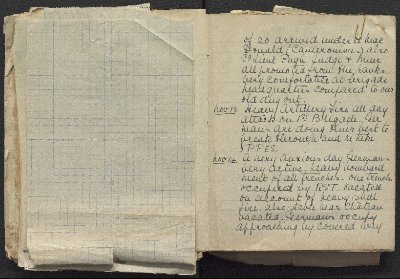 of 20 arrived under Lt Mac
Donald (Cameronians) also
2nd Lieut Judge &
all promoted from the ranks
very comfortable at Brigade
headquarters compared to our
old dug out.
Nov 13 Heavy Artillery fire all day
attack on 1st Brigade. Ger
mans are doing their best to
break through and retake
YPRES.
Nov 14 A very anxious day Germans
very active. heavy bombard
ment of all trenches. One trench
occupied by vacated
on account of heavy shell
fire. also stable near Chateau
vacated. Germans occupy
approaching by covered way